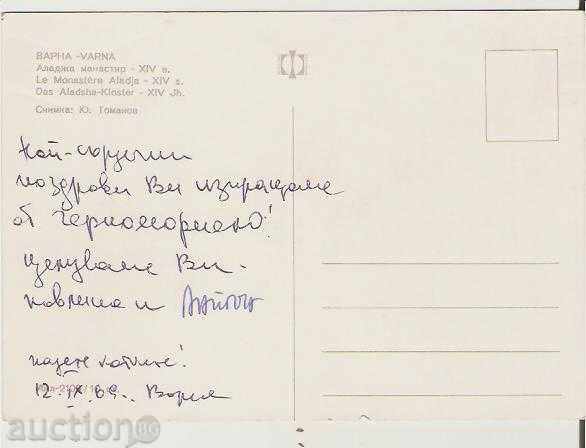 ВАРНА -VARNA
Аладжа манастир - XIV в.
Le Monastère Aladja - XIV s.
Das Aladsha-Kloster - XIV Jh.
Снимка: Ю. Томанов
Най-сърдечни
поздрави Ви изпращаме
от Черноморието!
Целуваме Ви -
и
пазете котките!
12.IX.69. Варна
auction.bg